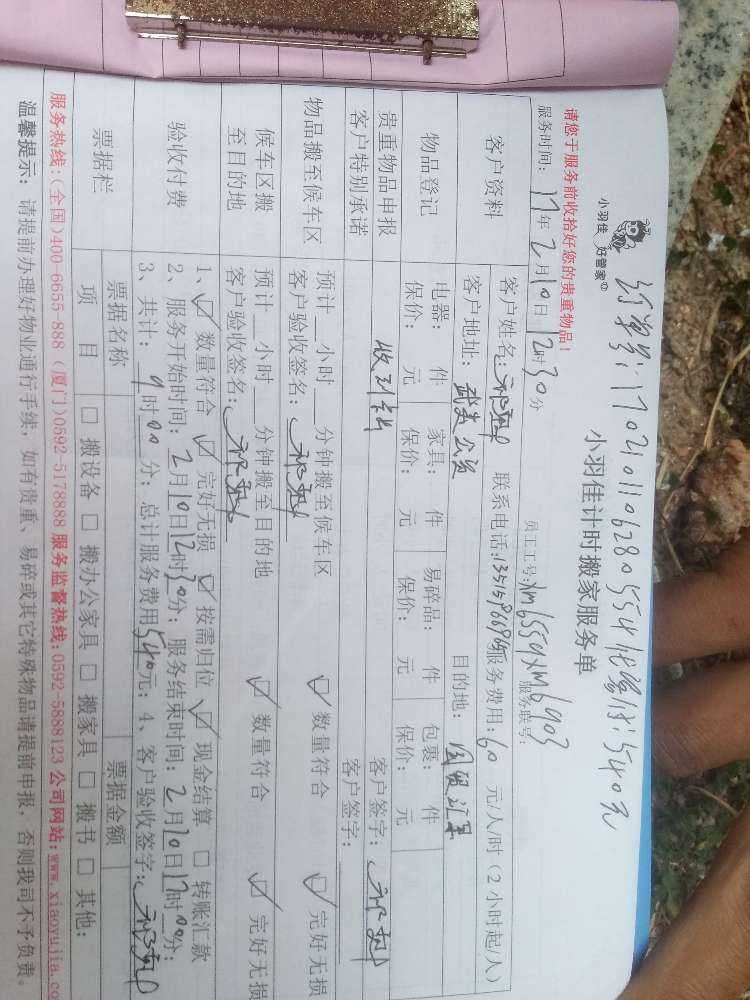 订单号:170210110628055 4优惠价:540元
小羽佳 好管家
小羽佳计时搬家服务单
请您于服务前收拾好您的贵重物品！
服务时间: 17年2月10日12时30分 员工工号:xm6554xm6903 服务联号:
客户资料 客户姓名: 联系电话: 服务费用:60 元/人/时(2小时起/人)
客户地址: 目的地: 国贸
物品登记 电器: 件 家具: 件 易碎品: 件 包裹: 件
保价: 元 保价: 元 保价: 元 保价: 元
贵重物品申报 客户签字:
客户特别承诺 客户签字:
物品搬至候车区 预计 小时 分钟搬至候车区 ☑ 数量符合 ☑ 完好无损
客户验收签名:
候车区搬至目的地 预计 小时 分钟搬至目的地 ☑ 数量符合 ☑ 完好无损
客户验收签名:
验收付费 1、☑ 数量符合 ☑ 完好无损 ☑ 按需归位 ☑ 现金结算 □ 转账汇款
2、服务开始时间: 2月10日12时30分; 服务结束时间: 2月10日17时00分;
3、共计: 9时00分; 总计服务费用540元; 4、客户验收签字:
票据栏 票据名称 票据金额
项 目 □ 搬设备 □ 搬办公家具 □ 搬家具 □ 搬书 □ 其他:
服务热线:(全国)400-6655-888 (厦门)0592-5178888 服务监督热线:0592-5888123 公司网站:www.xiaoyujia.co
温馨提示: 请提前办理好物业通行手续，如有贵重、易碎或其它特殊物品请提前申报，否则我司不予负责。